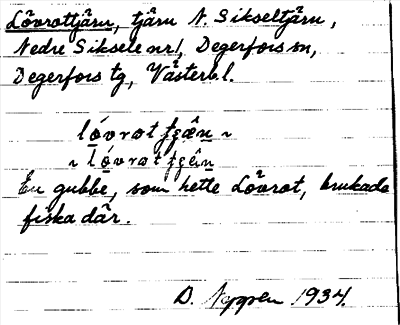 Lövrottjärn, tjärn N. Sikseltjärn,
Nedre Siksele nr 1, Degerfors sn,
Degerfors tg, Västerb l.
lóvrat
lóvrat
En gubbe, som hette Lövrot, brukade
fiska där.
D. 1934.